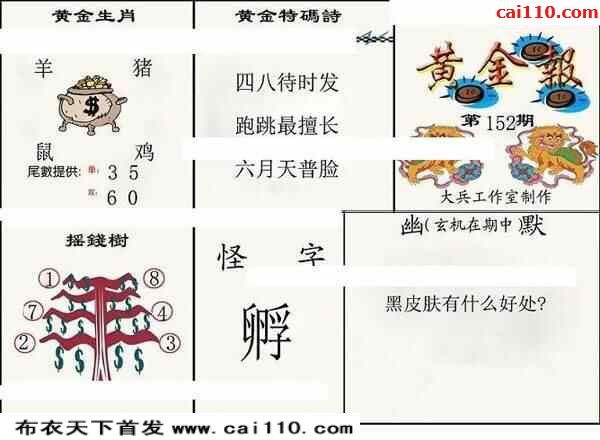 cai110.com
黄金生肖
羊 猪
$
鼠 鸡
尾數提供: 单: 3 5
双: 6 0
黄金特碼詩
四八待时发
跑跳最擅长
六月天普脸
黄金報
第152期
大兵工作室制作
摇錢樹
① ⑧
⑦ ④
② ③
$ $ $ $ $ $ $ $
怪 字
孵
幽(玄机在期中)默
黑皮肤有什么好处?
布衣天下首发 www.cai110.com